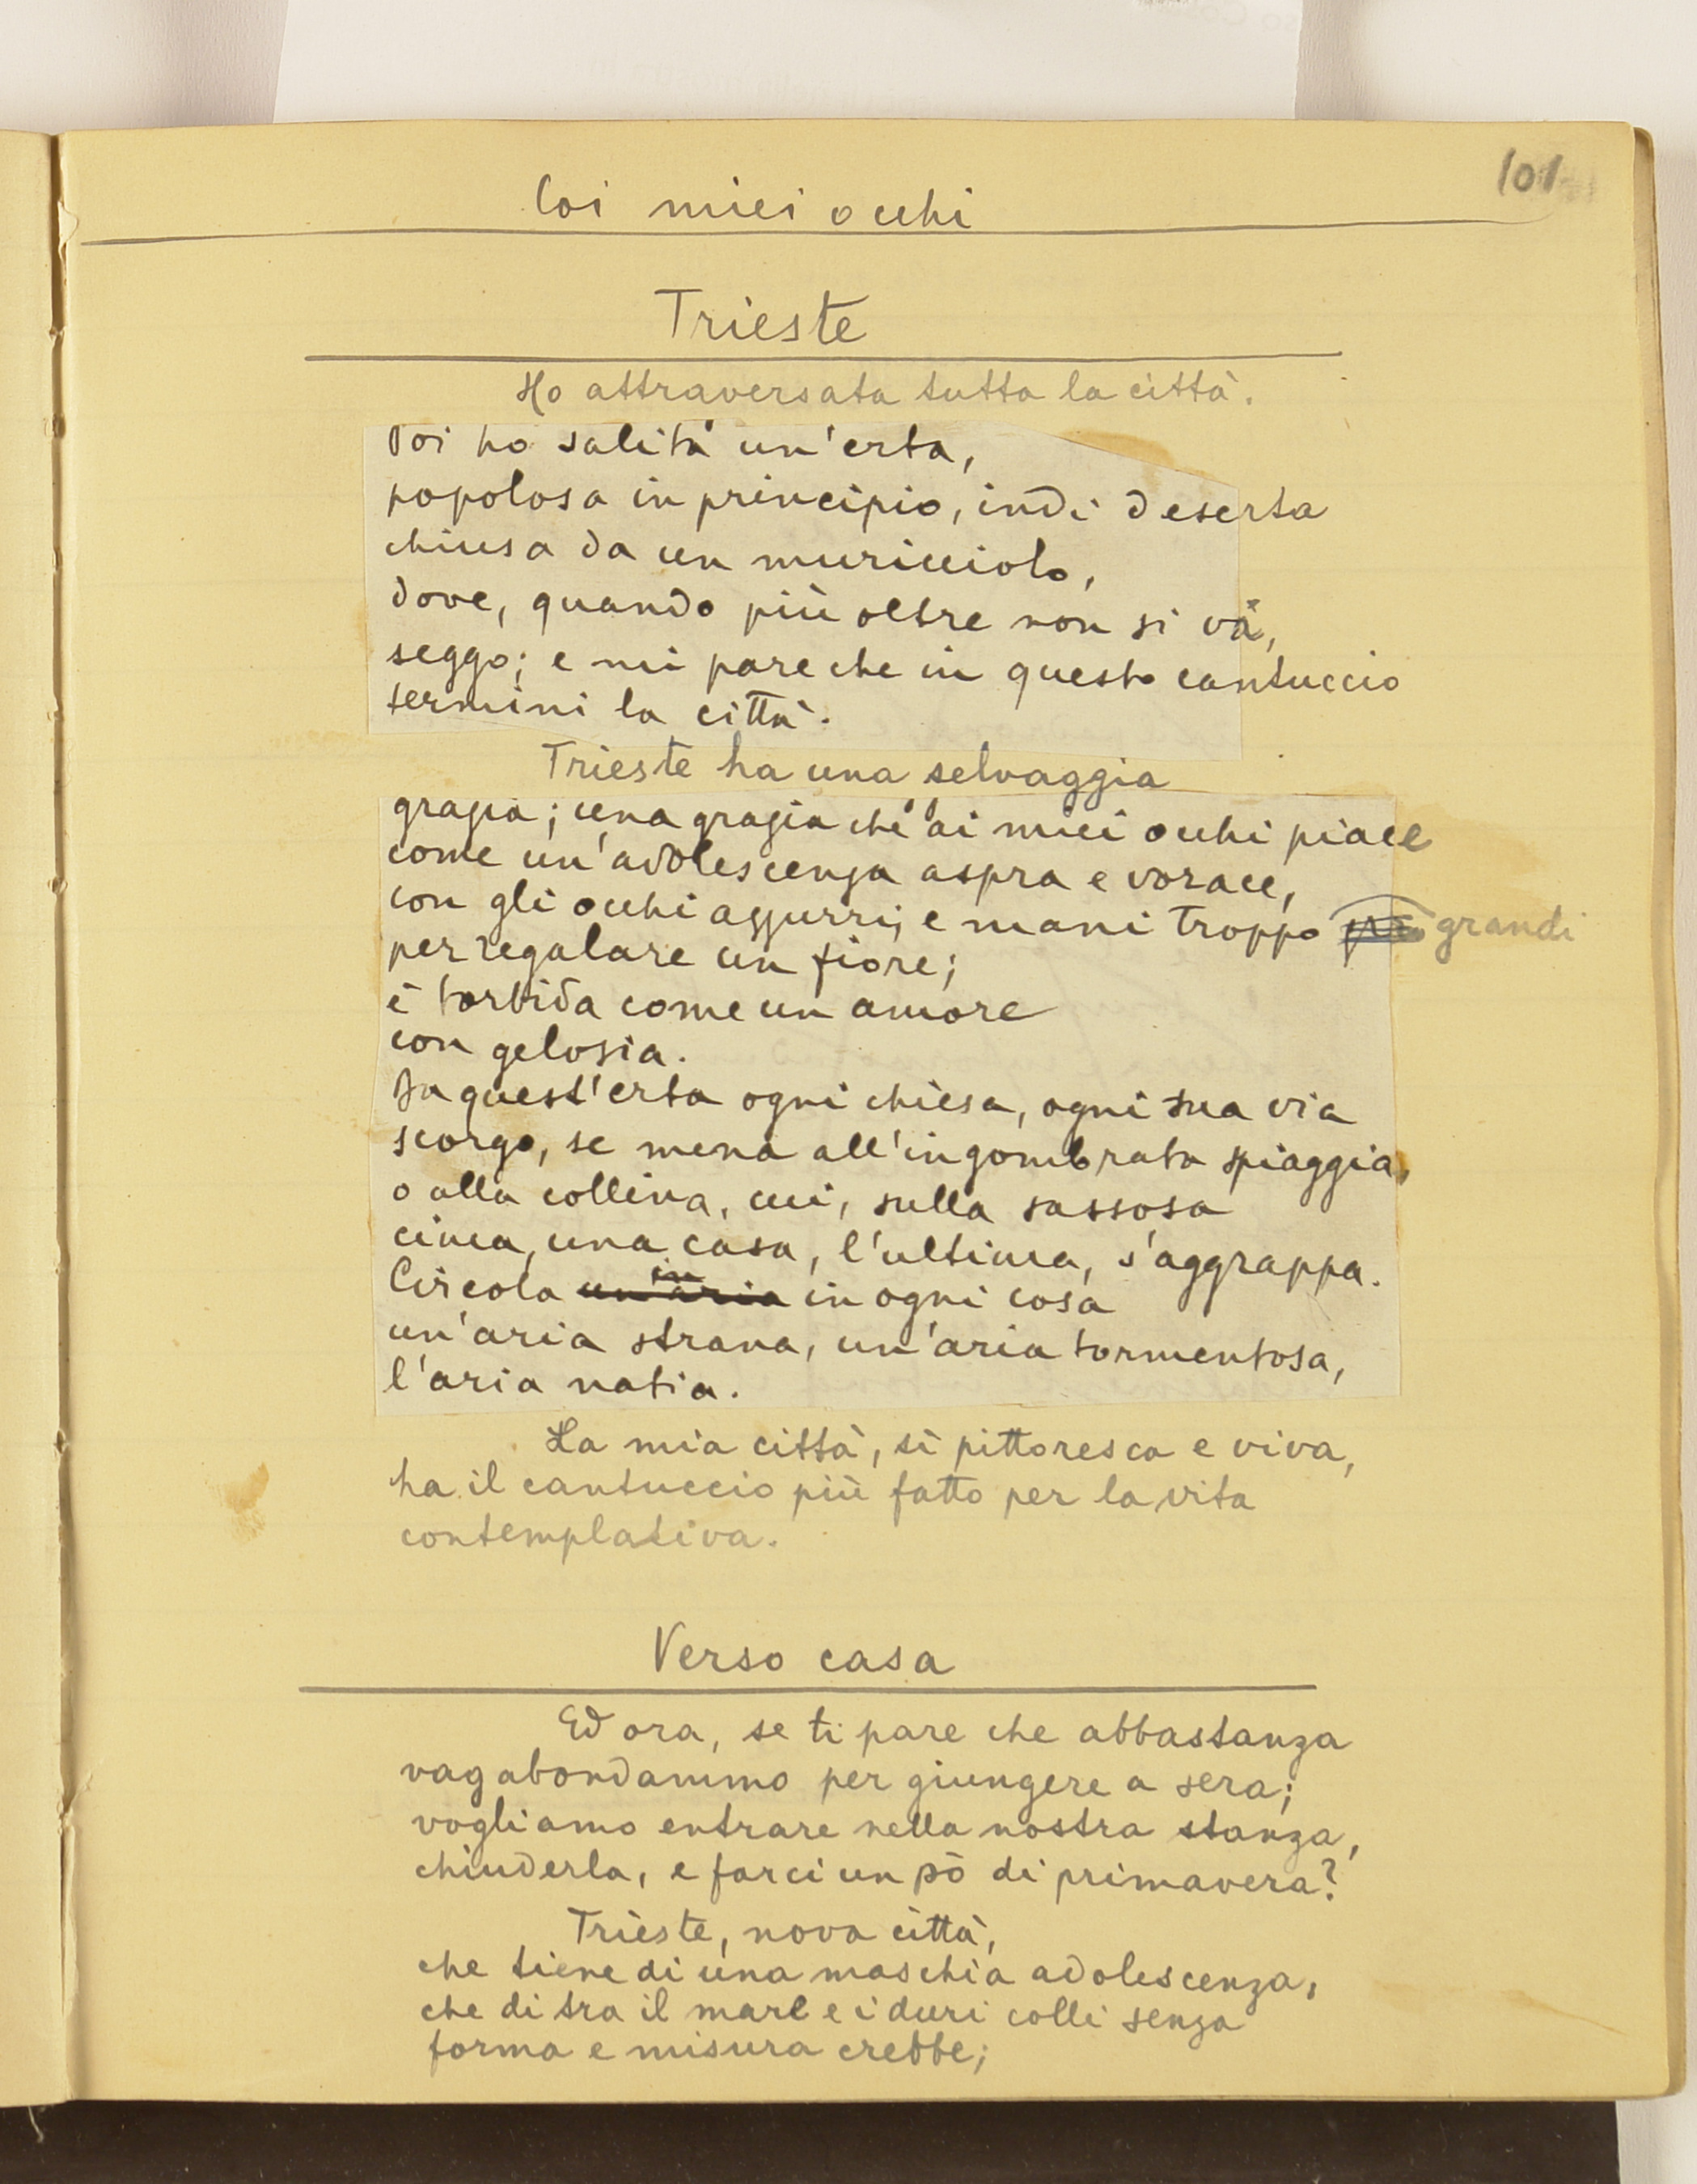 101
Coi miei occhi
Trieste
Ho attraversata tutta la città.
Poi ho salita un'erta,
popolosa in principio, indi deserta
chiusa da un muricciolo,
dove, quando più oltre non si và,
seggo; e mi pare che in questo cantuccio
termini la città.
Trieste ha una selvaggia
grazia; una grazia che ai miei occhi piace
come un'adolescenza aspra e vorace,
con gli occhi azzurri, e mani troppo grandi
per regalare un fiore;
è torbida come un amore
con gelosia.
Da quest'erta ogni chiesa, ogni sua via
scorgo, se mena all'ingombrata spiaggia,
o alla collina, cui, sulla sassosa
cima, una casa, l'ultima, s'aggrappa.
in
Circola un'aria in ogni cosa
un'aria strana, un'aria tormentosa,
l'aria natia.
La mia città, sì pittoresca e viva,
ha il cantuccio più fatto per la vita
contemplativa.
Verso casa
Ed ora, se ti pare che abbastanza
vagabondammo per giungere a sera;
vogliamo entrare nella nostra stanza,
chiuderla, e farci un pò di primavera?
Trieste, nova città,
che tiene di una maschia adolescenza,
che di tra il mare e i duri colli senza
forma e misura crebbe;